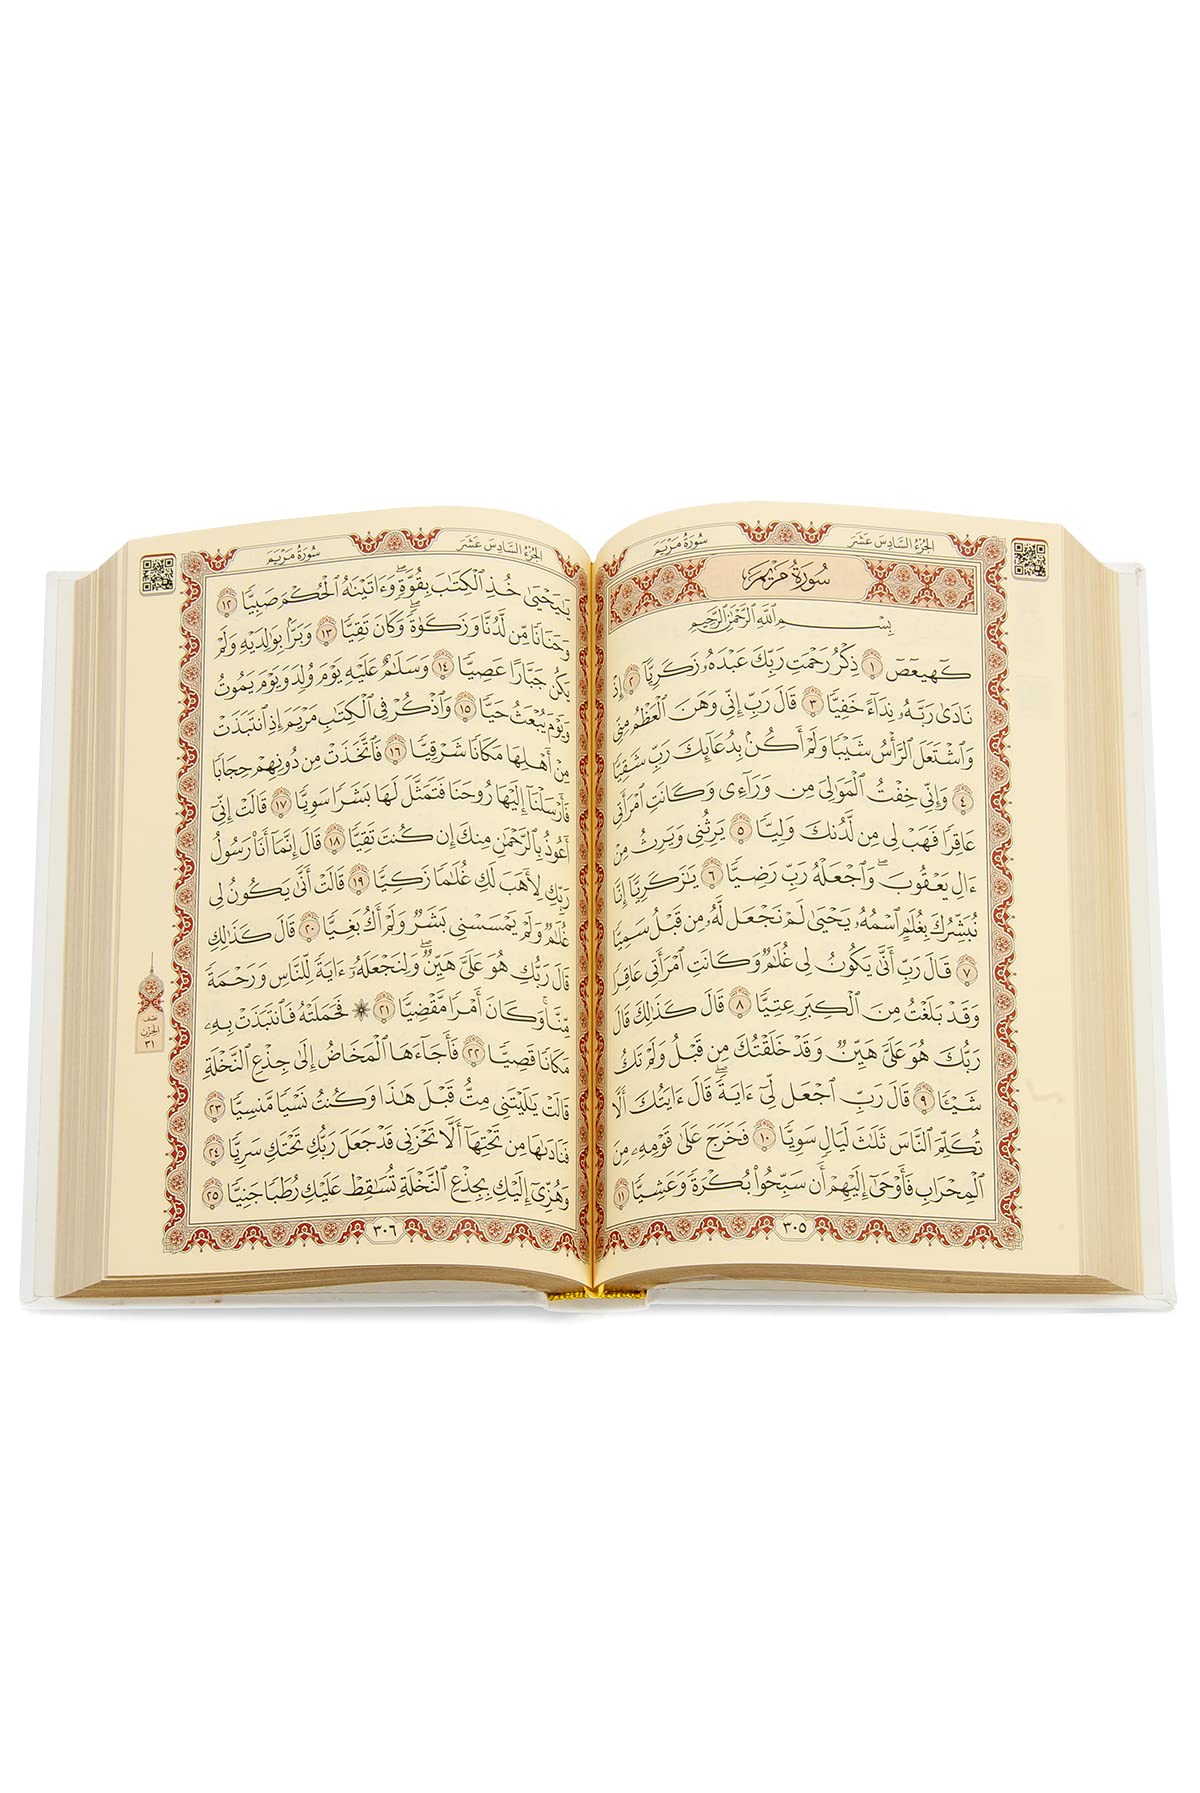 الجزء السادس عشر
سورة مريم
سُورَةُ مَرْيَمَ
بِسْمِ ٱللَّهِ ٱلرَّحْمَٰنِ ٱلرَّحِيمِ
كٓهيعٓصٓ ١ ذِكْرُ رَحْمَتِ رَبِّكَ عَبْدَهُۥ زَكَرِيَّآ ٢ إِذْ
نَادَىٰ رَبَّهُۥ نِدَآءً خَفِيًّا ٣ قَالَ رَبِّ إِنِّى وَهَنَ ٱلْعَظْمُ مِنِّى
وَٱشْتَعَلَ ٱلرَّأْسُ شَيْبًا وَلَمْ أَكُنۢ بِدُعَآئِكَ رَبِّ شَقِيًّا
٤ وَإِنِّى خِفْتُ ٱلْمَوَٰلِىَ مِن وَرَآءِى وَكَانَتِ ٱمْرَأَتِى
عَاقِرًا فَهَبْ لِى مِن لَّدُنكَ وَلِيًّا ٥ يَرِثُنِى وَيَرِثُ مِنْ
ءَالِ يَعْقُوبَ ۖ وَٱجْعَلْهُ رَبِّ رَضِيًّا ٦ يَٰزَكَرِيَّآ إِنَّا
نُبَشِّرُكَ بِغُلَٰمٍ ٱسْمُهُۥ يَحْيَىٰ لَمْ نَجْعَل لَّهُۥ مِن قَبْلُ سَمِيًّا
٧ قَالَ رَبِّ أَنَّىٰ يَكُونُ لِى غُلَٰمٌ وَكَانَتِ ٱمْرَأَتِى عَاقِرًا
وَقَدْ بَلَغْتُ مِنَ ٱلْكِبَرِ عِتِيًّا ٨ قَالَ كَذَٰلِكَ قَالَ
رَبُّكَ هُوَ عَلَىَّ هَيِّنٌ وَقَدْ خَلَقْتُكَ مِن قَبْلُ وَلَمْ تَكُ
شَيْـًٔا ٩ قَالَ رَبِّ ٱجْعَل لِّىٓ ءَايَةً ۚ قَالَ ءَايَتُكَ أَلَّا
تُكَلِّمَ ٱلنَّاسَ ثَلَٰثَ لَيَالٍ سَوِيًّا ١٠ فَخَرَجَ عَلَىٰ قَوْمِهِۦ مِنَ
ٱلْمِحْرَابِ فَأَوْحَىٰٓ إِلَيْهِمْ أَن سَبِّحُوا۟ بُكْرَةً وَعَشِيًّا ١١
٣٠٥
الجزء السادس عشر
سورة مريم
يَٰيَحْيَىٰ خُذِ ٱلْكِتَٰبَ بِقُوَّةٍ ۖ وَءَاتَيْنَٰهُ ٱلْحُكْمَ صَبِيًّا ١٢
وَحَنَانًا مِّن لَّدُنَّا وَزَكَوٰةً ۖ وَكَانَ تَقِيًّا ١٣ وَبَرًّۢا بِوَٰلِدَيْهِ وَلَمْ
يَكُن جَبَّارًا عَصِيًّا ١٤ وَسَلَٰمٌ عَلَيْهِ يَوْمَ وُلِدَ وَيَوْمَ يَمُوتُ
وَيَوْمَ يُبْعَثُ حَيًّا ١٥ وَٱذْكُرْ فِى ٱلْكِتَٰبِ مَرْيَمَ إِذِ ٱنتَبَذَتْ
مِنْ أَهْلِهَا مَكَانًا شَرْقِيًّا ١٦ فَٱتَّخَذَتْ مِن دُونِهِمْ حِجَابًا
فَأَرْسَلْنَآ إِلَيْهَا رُوحَنَا فَتَمَثَّلَ لَهَا بَشَرًا سَوِيًّا ١٧ قَالَتْ إِنِّىٓ
أَعُوذُ بِٱلرَّحْمَٰنِ مِنكَ إِن كُنتَ تَقِيًّا ١٨ قَالَ إِنَّمَآ أَنَا۠ رَسُولُ
رَبِّكِ لِأَهَبَ لَكِ غُلَٰمًا زَكِيًّا ١٩ قَالَتْ أَنَّىٰ يَكُونُ لِى
غُلَٰمٌ وَلَمْ يَمْسَسْنِى بَشَرٌ وَلَمْ أَكُ بَغِيًّا ٢٠ قَالَ كَذَٰلِكِ
قَالَ رَبُّكِ هُوَ عَلَىَّ هَيِّنٌ ۖ وَلِنَجْعَلَهُۥٓ ءَايَةً لِّلنَّاسِ وَرَحْمَةً
مِّنَّا ۚ وَكَانَ أَمْرًا مَّقْضِيًّا ٢١ ۞ فَحَمَلَتْهُ فَٱنتَبَذَتْ بِهِۦ
مَكَانًا قَصِيًّا ٢٢ فَأَجَآءَهَا ٱلْمَخَاضُ إِلَىٰ جِذْعِ ٱلنَّخْلَةِ
قَالَتْ يَٰلَيْتَنِى مِتُّ قَبْلَ هَٰذَا وَكُنتُ نَسْيًا مَّنسِيًّا ٢٣
فَنَادَىٰهَا مِن تَحْتِهَآ أَلَّا تَحْزَنِى قَدْ جَعَلَ رَبُّكِ تَحْتَكِ سَرِيًّا ٢٤
وَهُزِّىٓ إِلَيْكِ بِجِذْعِ ٱلنَّخْلَةِ تُسَٰقِطْ عَلَيْكِ رُطَبًا جَنِيًّا ٢٥
نصف
الحزب
٣١
٣٠٦